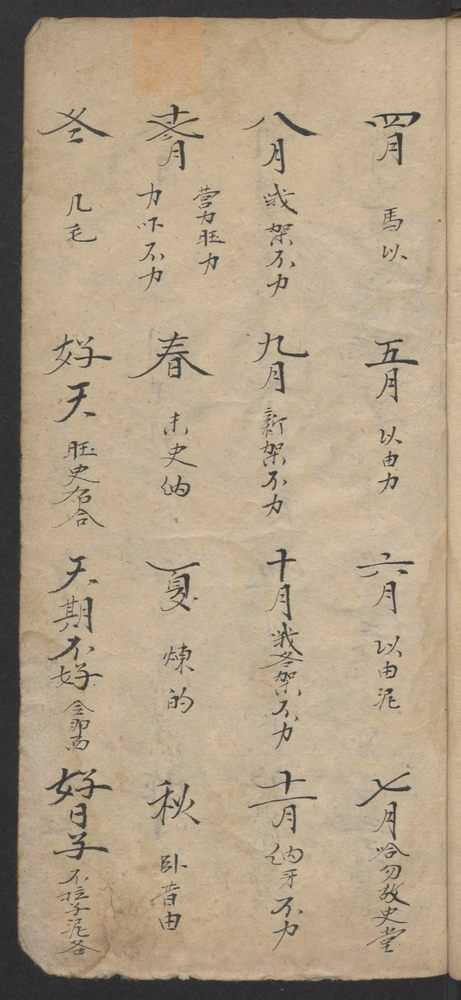 四月 馬以 五月 以由力 六月 以由泥 七月 哈勿敖史堂
八月 架不力 九月 新架不力 十月 架不力 十一月 纳牙不力
十二月 营力旺力 力吓不力 春 未史纳 夏 煉的 秋 卧昔由
冬 几毛 好天 旺史合 天期不好 好日子 不拉子泥各